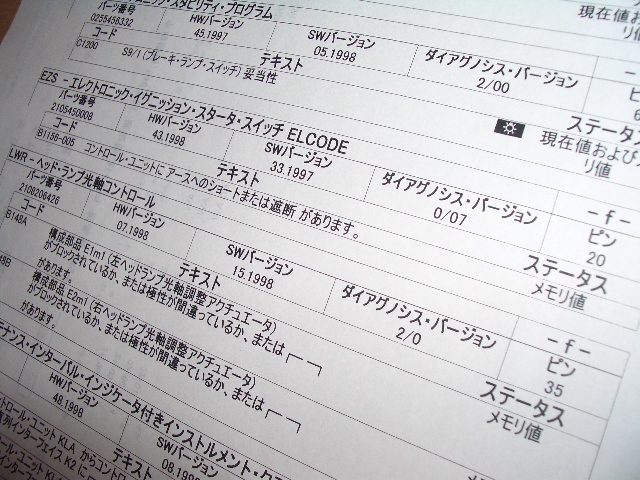 ニック・スタビリティ・プログラム
パーツ番号 HWバージョン SWバージョン ダイアグノシス・バージョン
0255456332 45.1997 05.1998 2/00
コード テキスト ステータス
C1200 S9/1 (ブレーキ・ランプ・スイッチ) 妥当性 現在値および
リ値
EZS - エレクトロニック・イグニッション・スタータ・スイッチ ELCODE - f -
パーツ番号 HWバージョン SWバージョン ダイアグノシス・バージョン ピン
2105450008 43.1998 33.1997 0/07 20
コード テキスト ステータス
B1156-005 コントロール・ユニットに アースへのショートまたは遮断 があります。 メモリ値
LWR - ヘッド・ランプ光軸コントロール - f -
パーツ番号 HWバージョン SWバージョン ダイアグノシス・バージョン ピン
2108206426 07.1998 15.1998 2/0 35
コード テキスト ステータス
B148A 構成部品 E1m1 (左ヘッドランプ光軸調整アクチュエータ) メモリ値
がブロックされているか、または極性が間違っているか、または
があります。
構成部品 E2m1 (右ヘッドランプ光軸調整アクチュエータ)
がブロックされているか、または極性が間違っているか、または
があります。
テナンス・インターバル・インジケータ付きインストルメント・ク
HWバージョン SWバージョン
48.1998 08.1998
テキスト
コントロール・ユニット KLA からコント
インターフェイス K2 に